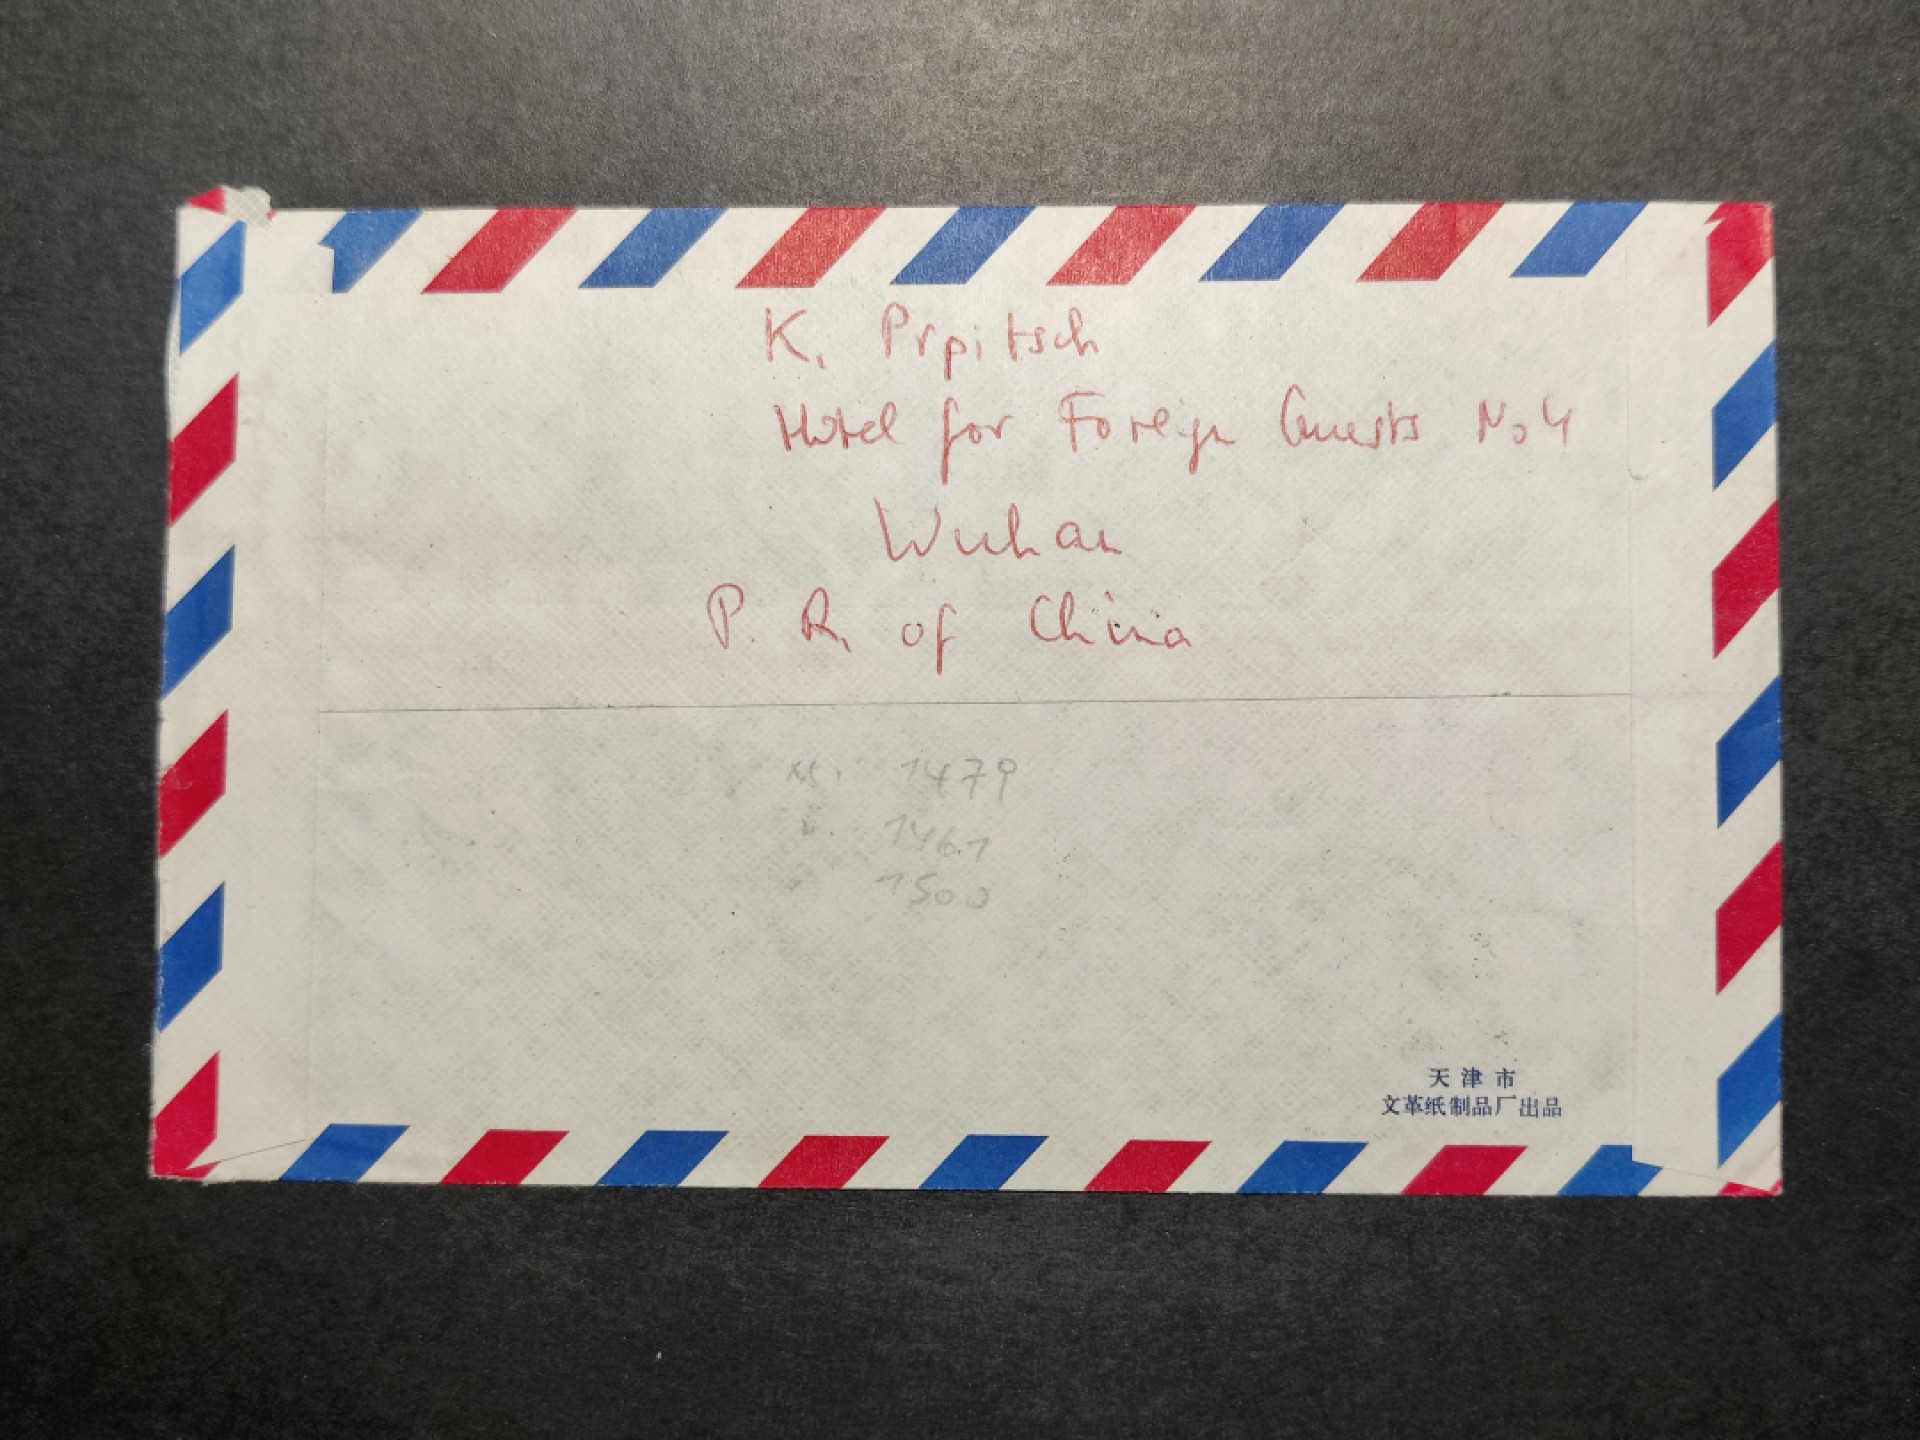 K. Prpitsch
Hotel for Foreign Guests No 4
Wuhan
P. R. of China
Mi 1479
" 1461
" 1500
天津市
文革纸制品厂出品